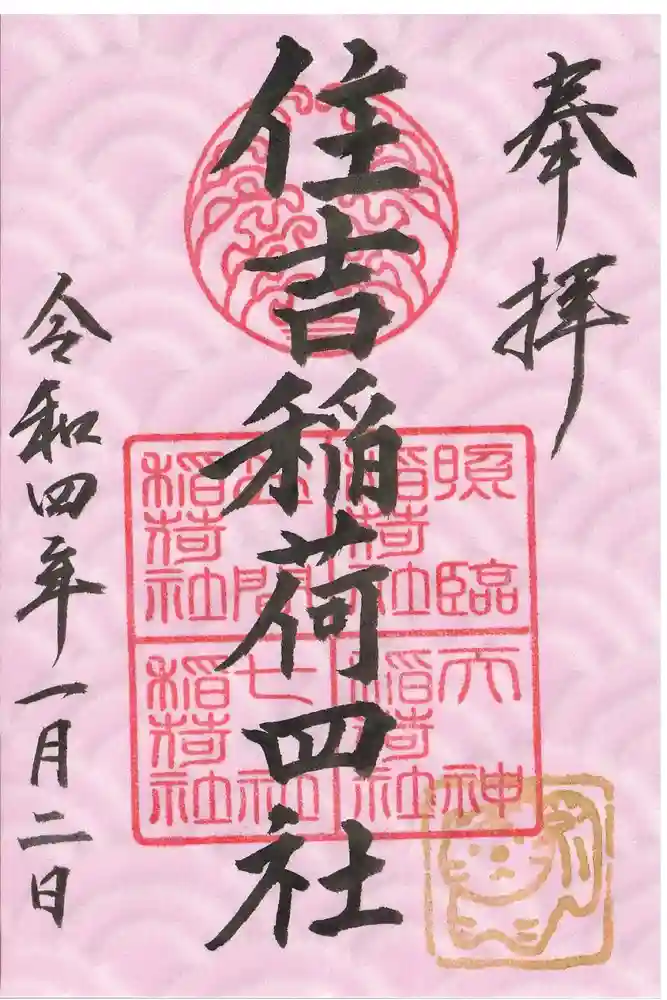 奉拝
住吉稲荷四社
照臨
稲荷社
基間
稲荷社
六神
稲荷社
七社
稲荷社
令和四年一月二日